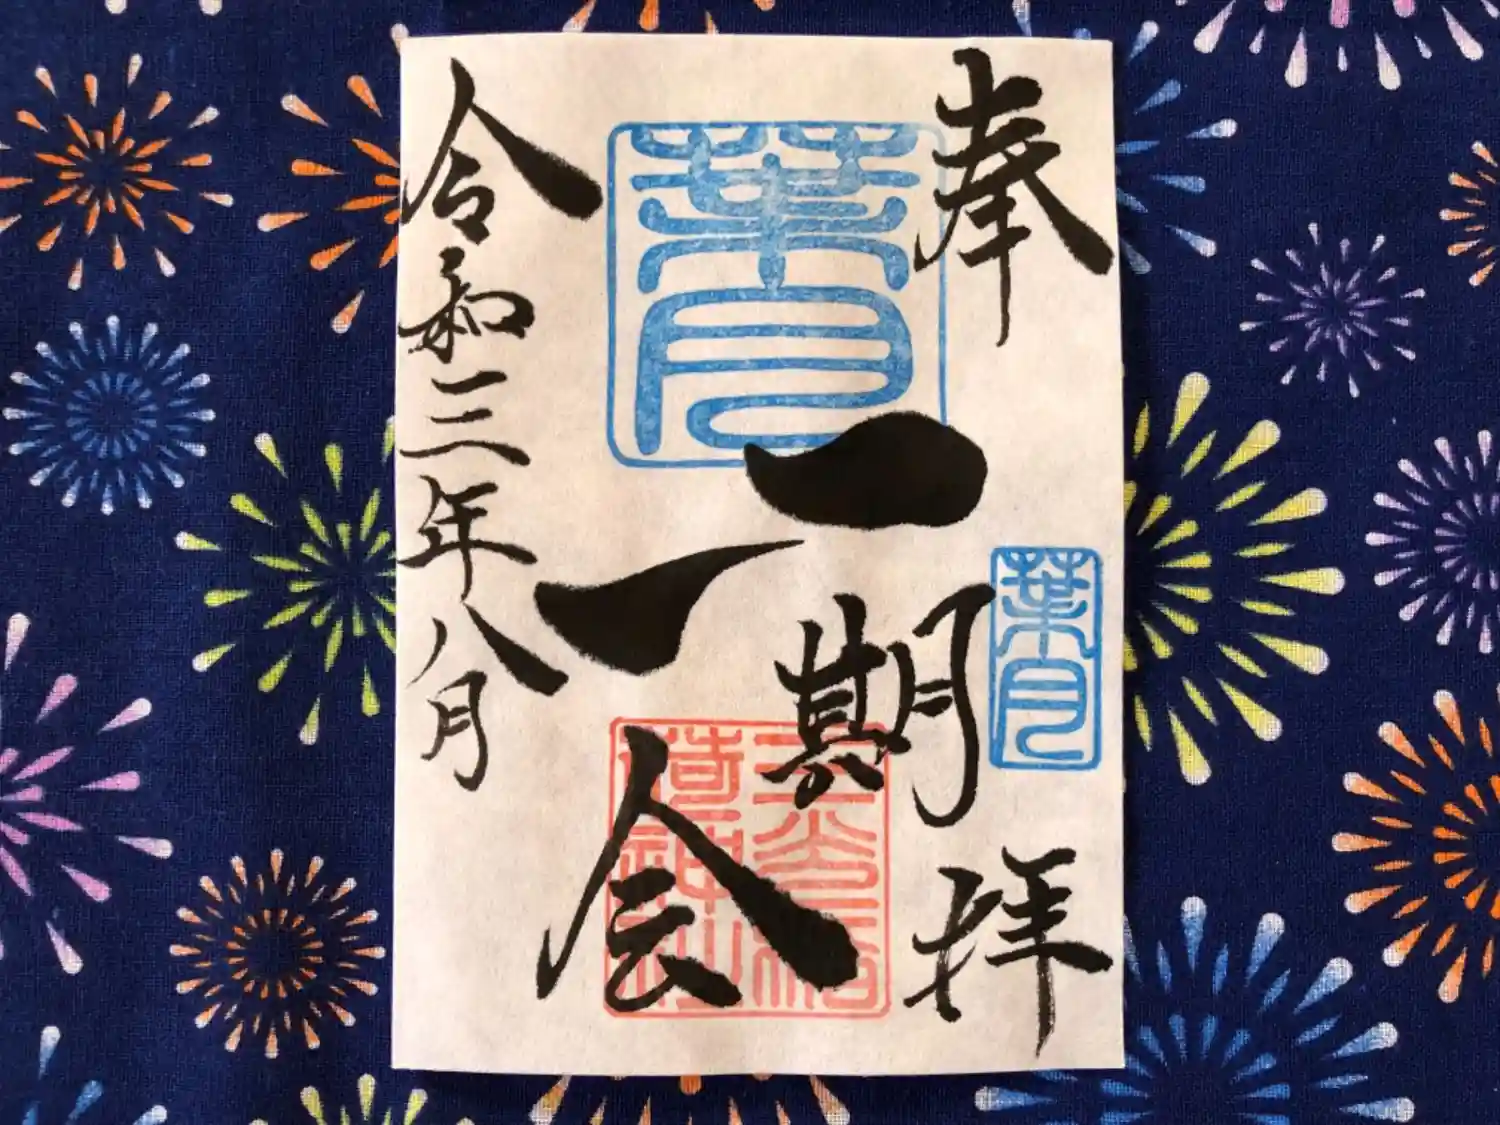 奉拝
葉月
葉月
一期
一会
令和三年八月